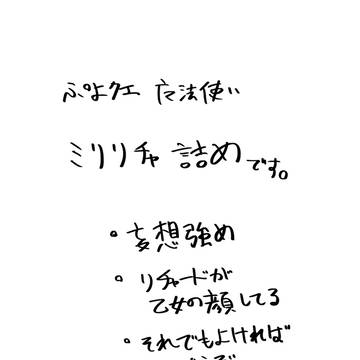 ぷよクエ 魔法使い
ミリリチャ 詰め です。
・妄想強め
・リチャードが
乙女の顔してる
・それでもよければ